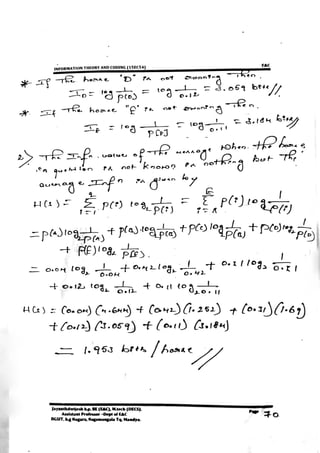 INFORMATION THEORY AND CODING (15EC54) E&C
* If The horse "D" is not running then.
I_D = log 1/P(D) = log 1/0.12 = 3.059 bits//
* If The horse "E" is not running then.
I_E = log 1/P(E) = log 1/0.11 = 3.184 bits//
2> The Infn. value of The message when the horse
in question is not known is nothing but The
average Infn is given by
H(s) = Σ P(i) log₂ 1/P(i) = Σ P(i) log 1/P(i)
= P(A) log 1/P(A) + P(B) log 1/P(B) + P(c) log 1/P(c) + P(D) log₂ 1/P(D)
+ P(E) log₂ 1/P(E).
= 0.04 log₂ 1/0.04 + 0.42 log₂ 1/0.42 + 0.31 log₂ 1/0.31
+ 0.12 log₂ 1/0.12 + 0.11 log 1/0.11
H(s) = (0.04)(4.644) + (0.42)(1.252) + (0.31)(1.69)
+ (0.12)(3.059) + (0.11)(3.184)
= 1.953 bits/horse//
Jayanthdwijesh h.p. BE (E&C), M.tech (DECS).
Assistant Professor - Dept of E&C
BGSIT, b.g Nagara, Nagamangala Tq, Mandya.
Page 70